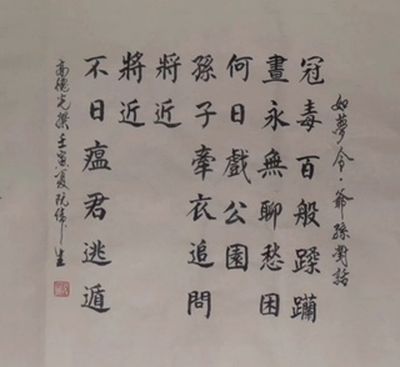 如夢令·爺孫對話
冠毒百般蹂躪
晝永無聊愁困
何日戲公園
孫子牽衣追問
將近
將近
不日瘟君逃遁
高德光撰壬寅夏阮偉生